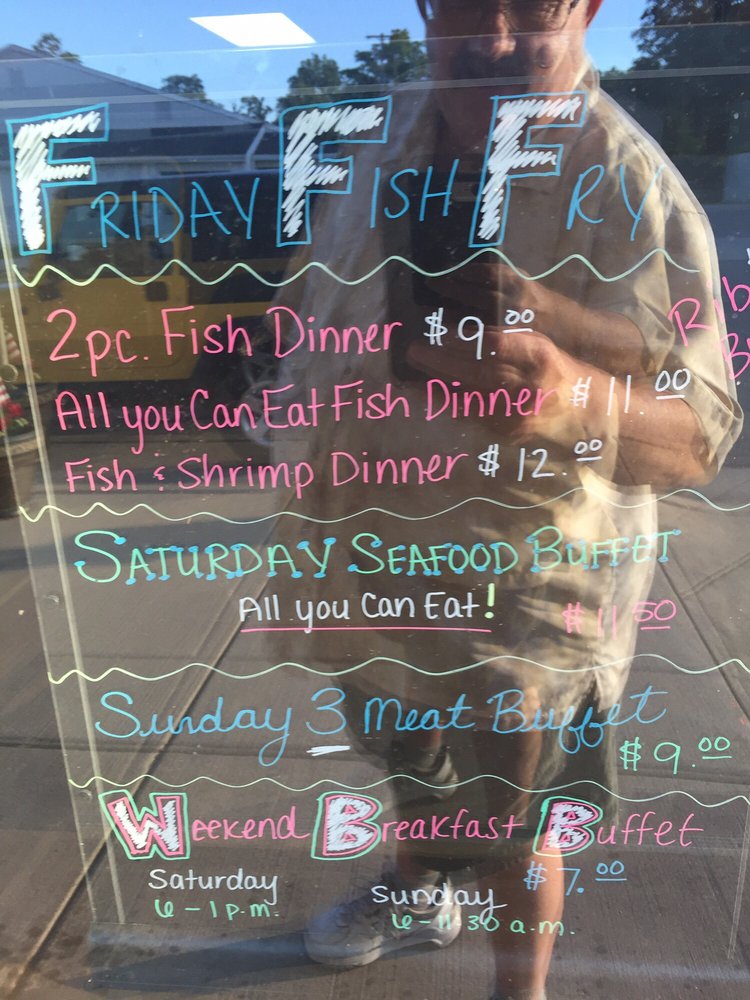 FRIDAY FISH FRY
2pc. Fish Dinner $9.00
All you Can Eat Fish Dinner $11.00
Fish & Shrimp Dinner $12.00
Rib
SATURDAY SEAFOOD BUFFET
All you Can Eat!
$11.50
Sunday 3 Meat Buffet
$9.00
Weekend Breakfast Buffet
$7.00
Saturday
6-1p.m.
Sunday
6-11:30 a.m.